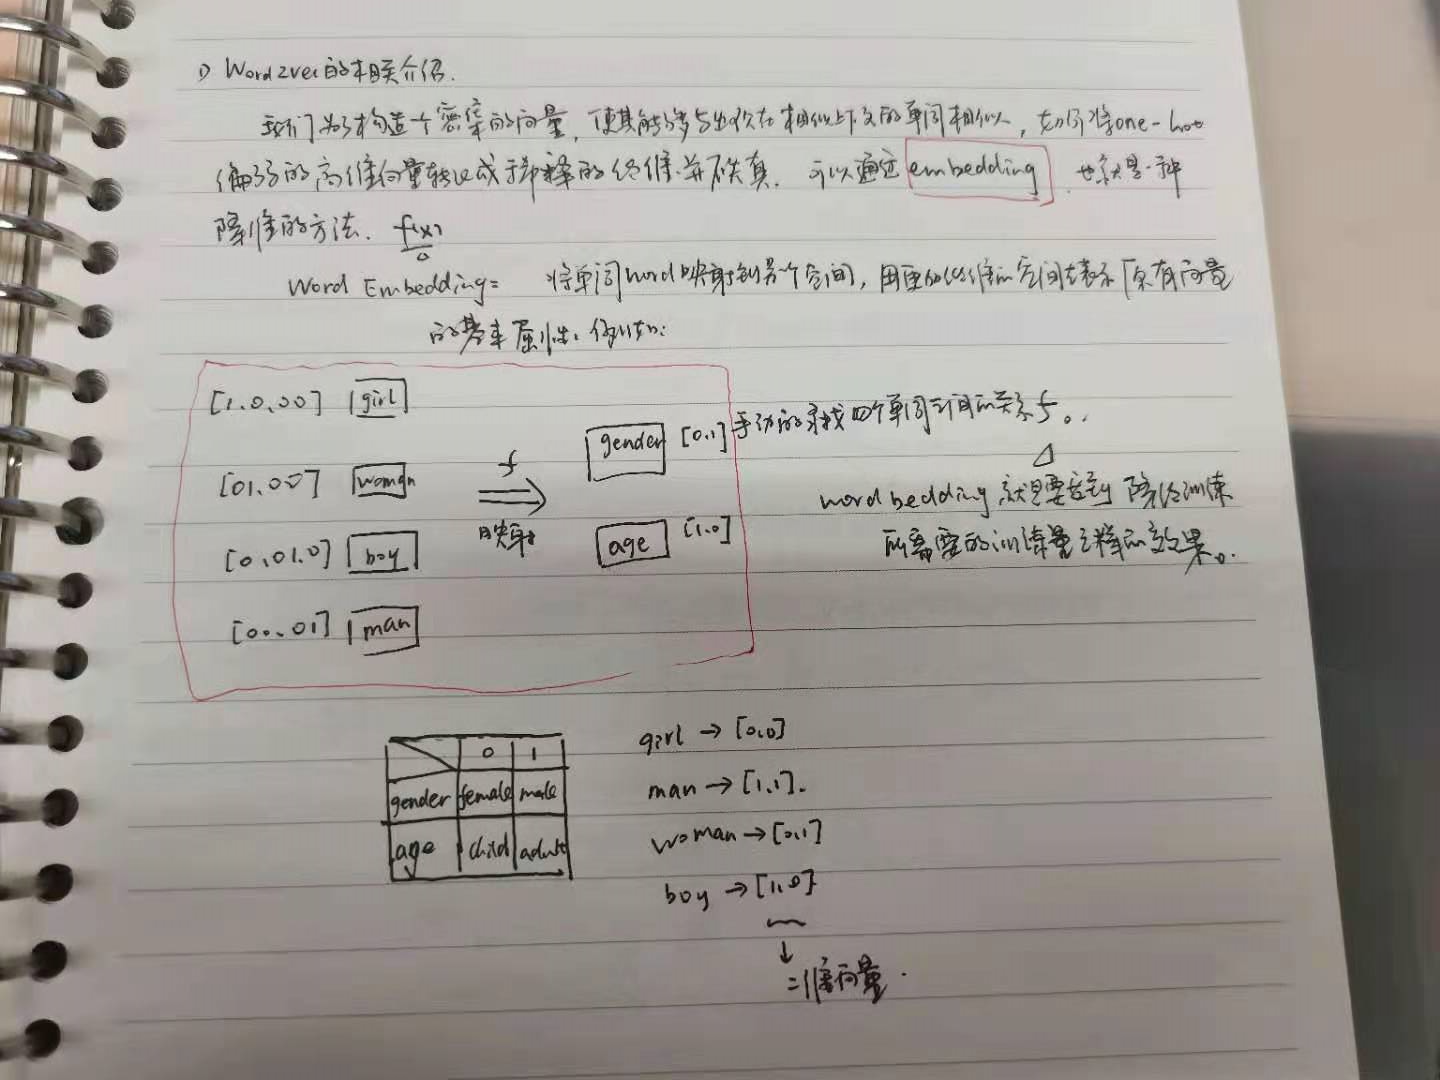 1) Word2vec的相关介绍.
我们为了构造一个密集的向量, 使其能够与出现在相似上下文的单词相似, 如何将one-hot
编码的高维向量转化成 的低维并不失真. 可以通过 embedding, 也就是一种
降维的方法. f(x)
Word Embedding: 将单词word映射到另一个空间, 用更加低维的空间去表示原有向量
的基本属性. 例如:
[1,0,00] girl
gender [0,1] 手动的寻找四个单词之间的关系f。
[01,00] woman
f
映射
wordbedding 就是要达到 降低训练
[0,01,0] boy
age [1,0]
所需要的训练量之类的效果。
[00,01] man
0 1
gender female male
age child adult
girl → [0,0]
man → [1,1].
woman → [0,1]
boy → [1,0]
↓
二维向量.